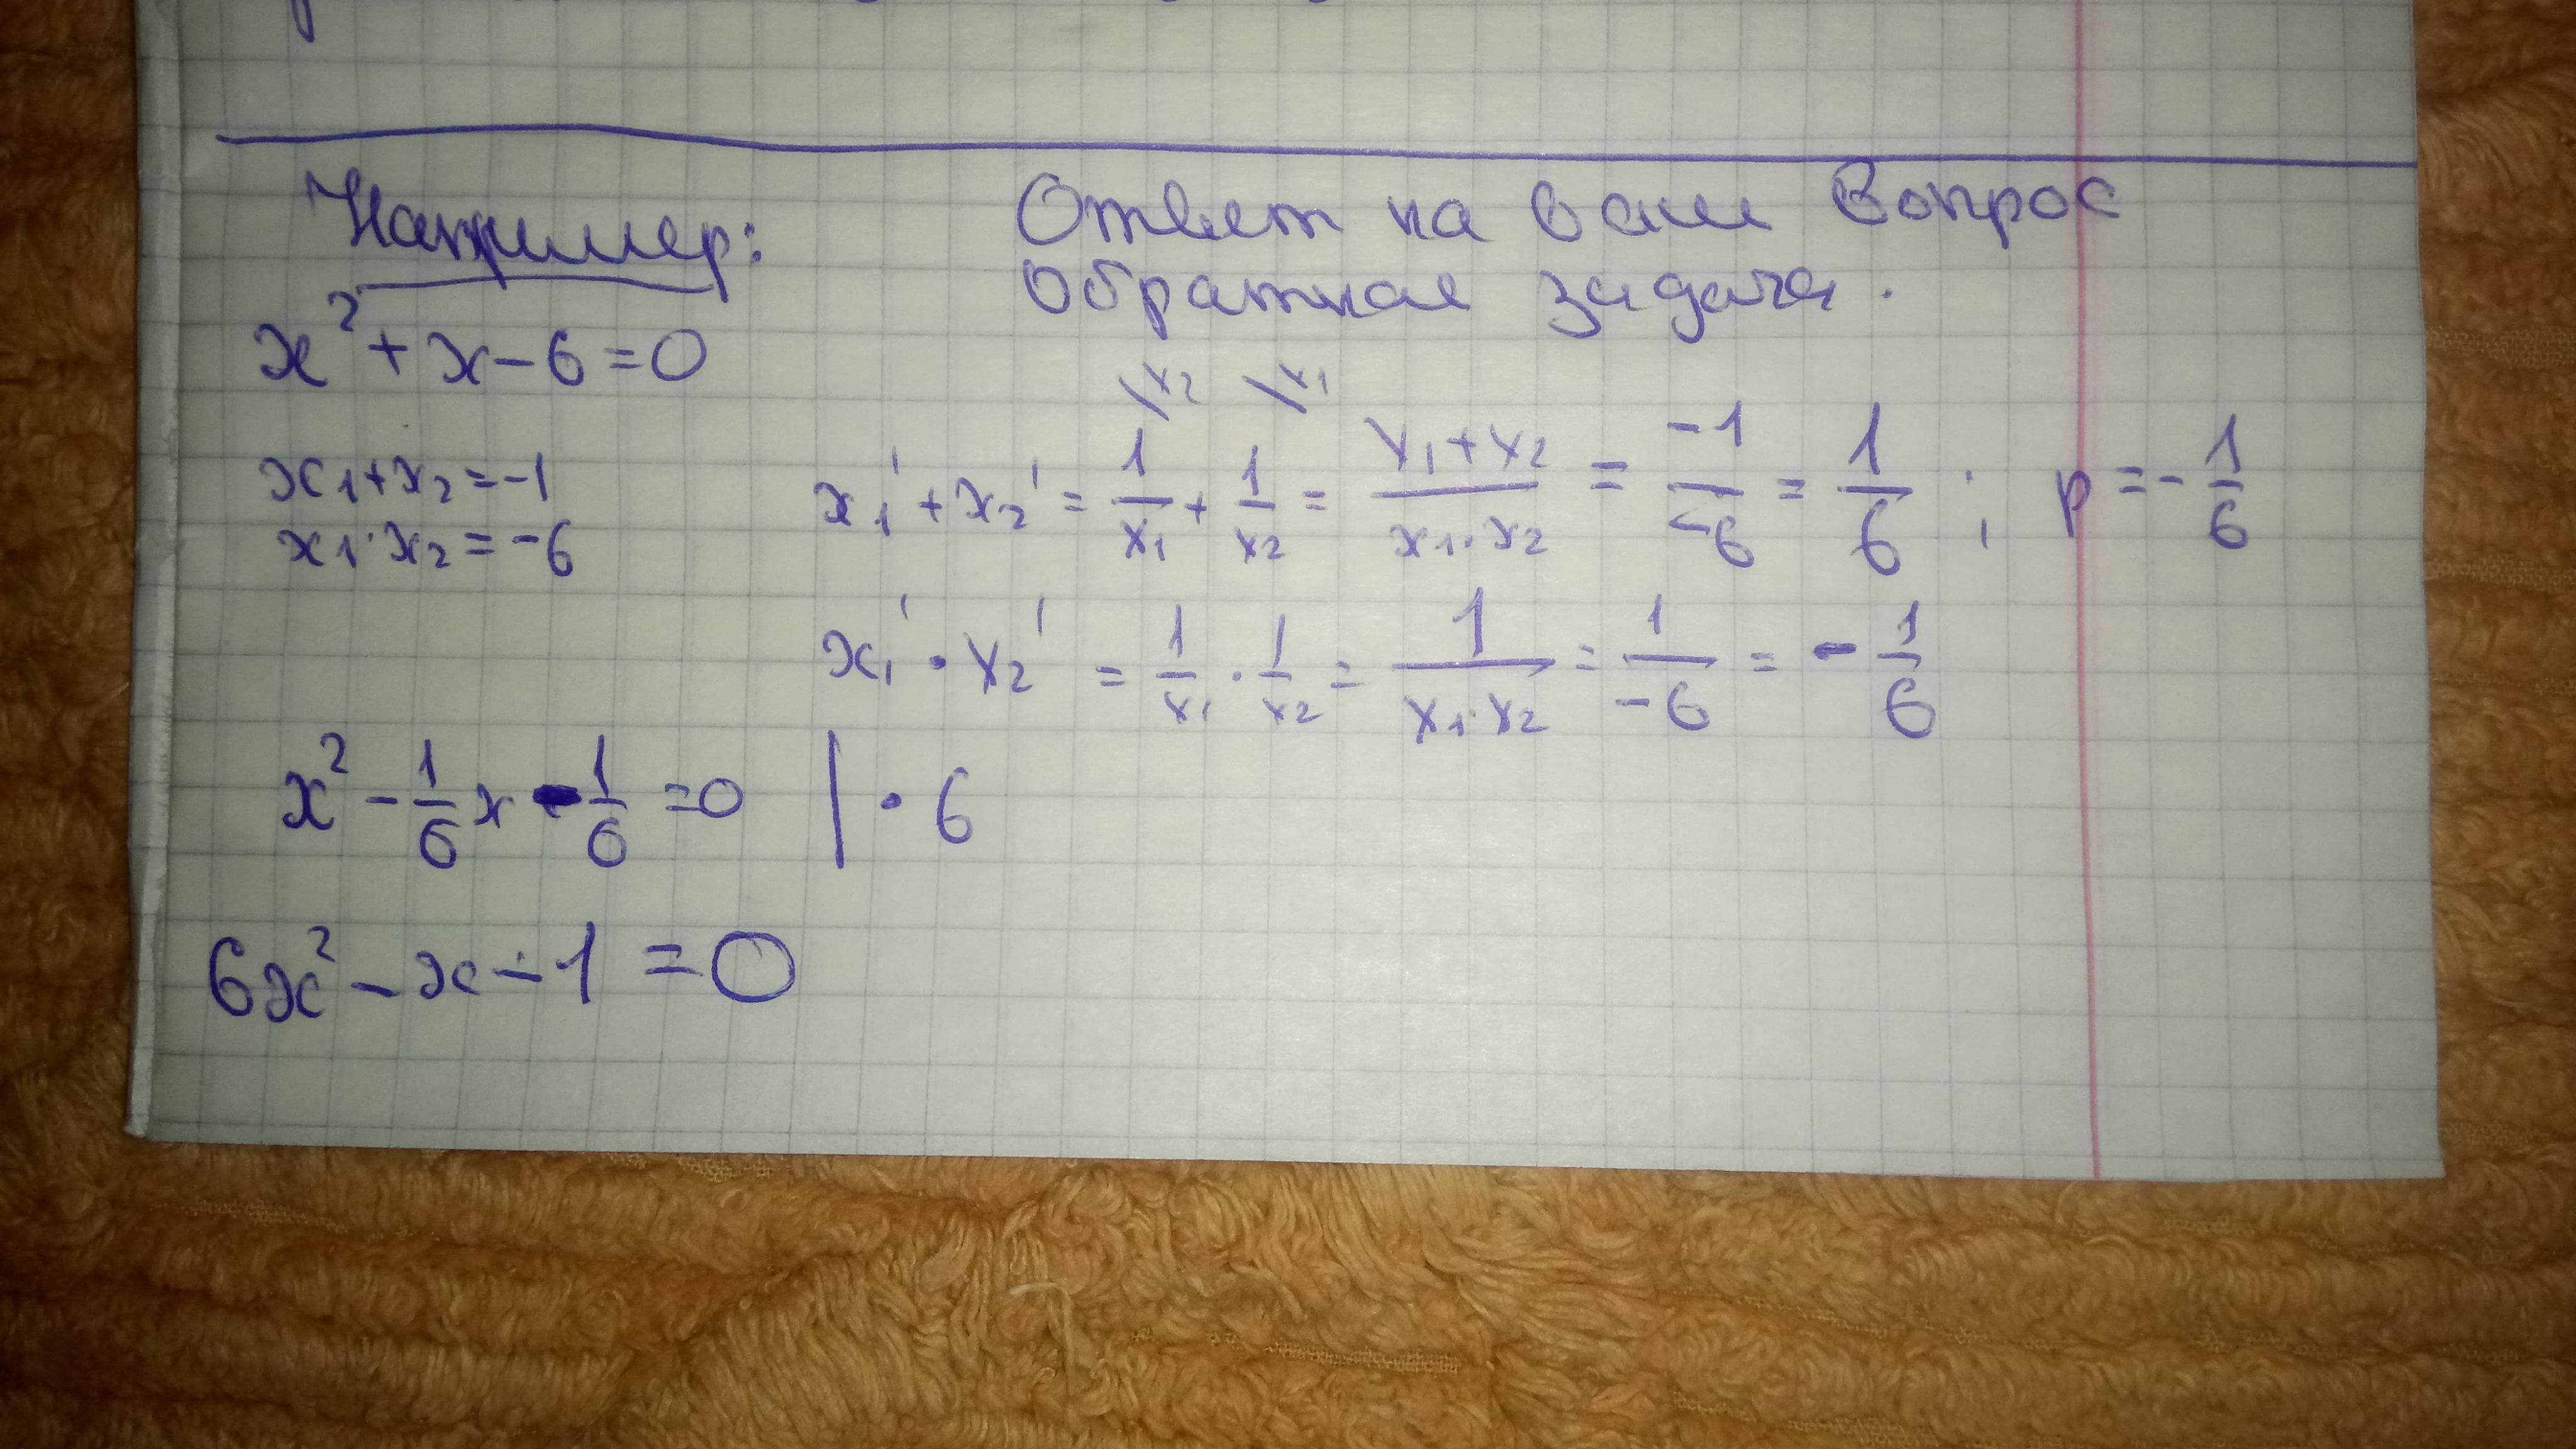 Например:
Ответ на ваш вопрос
Обратная задача.
x² + x - 6 = 0
\x₂ \x₁
x₁ + x₂ = -1
x₁ · x₂ = -6
x₁' + x₂' = 1/x₁ + 1/x₂ = (x₁ + x₂)/(x₁ · x₂) = -1/-6 = 1/6 ; p = -1/6
x₁' · x₂' = 1/x₁ · 1/x₂ = 1/(x₁ · x₂) = 1/-6 = -1/6
x² - 1/6 x - 1/6 = 0 | · 6
6x² - x - 1 = 0